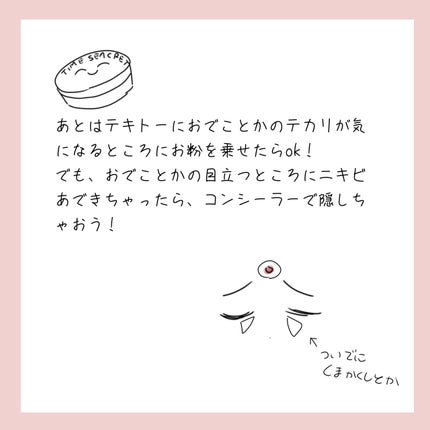 TIME SEACRET
あとはテキトーにおでことかのテカリが気
になるところにお粉を乗せたらok！
でも、おでことかの目立つところにニキビ
あできちゃったら、コンシーラーで隠しち
ゃおう！
ついでに
くまかくしとか